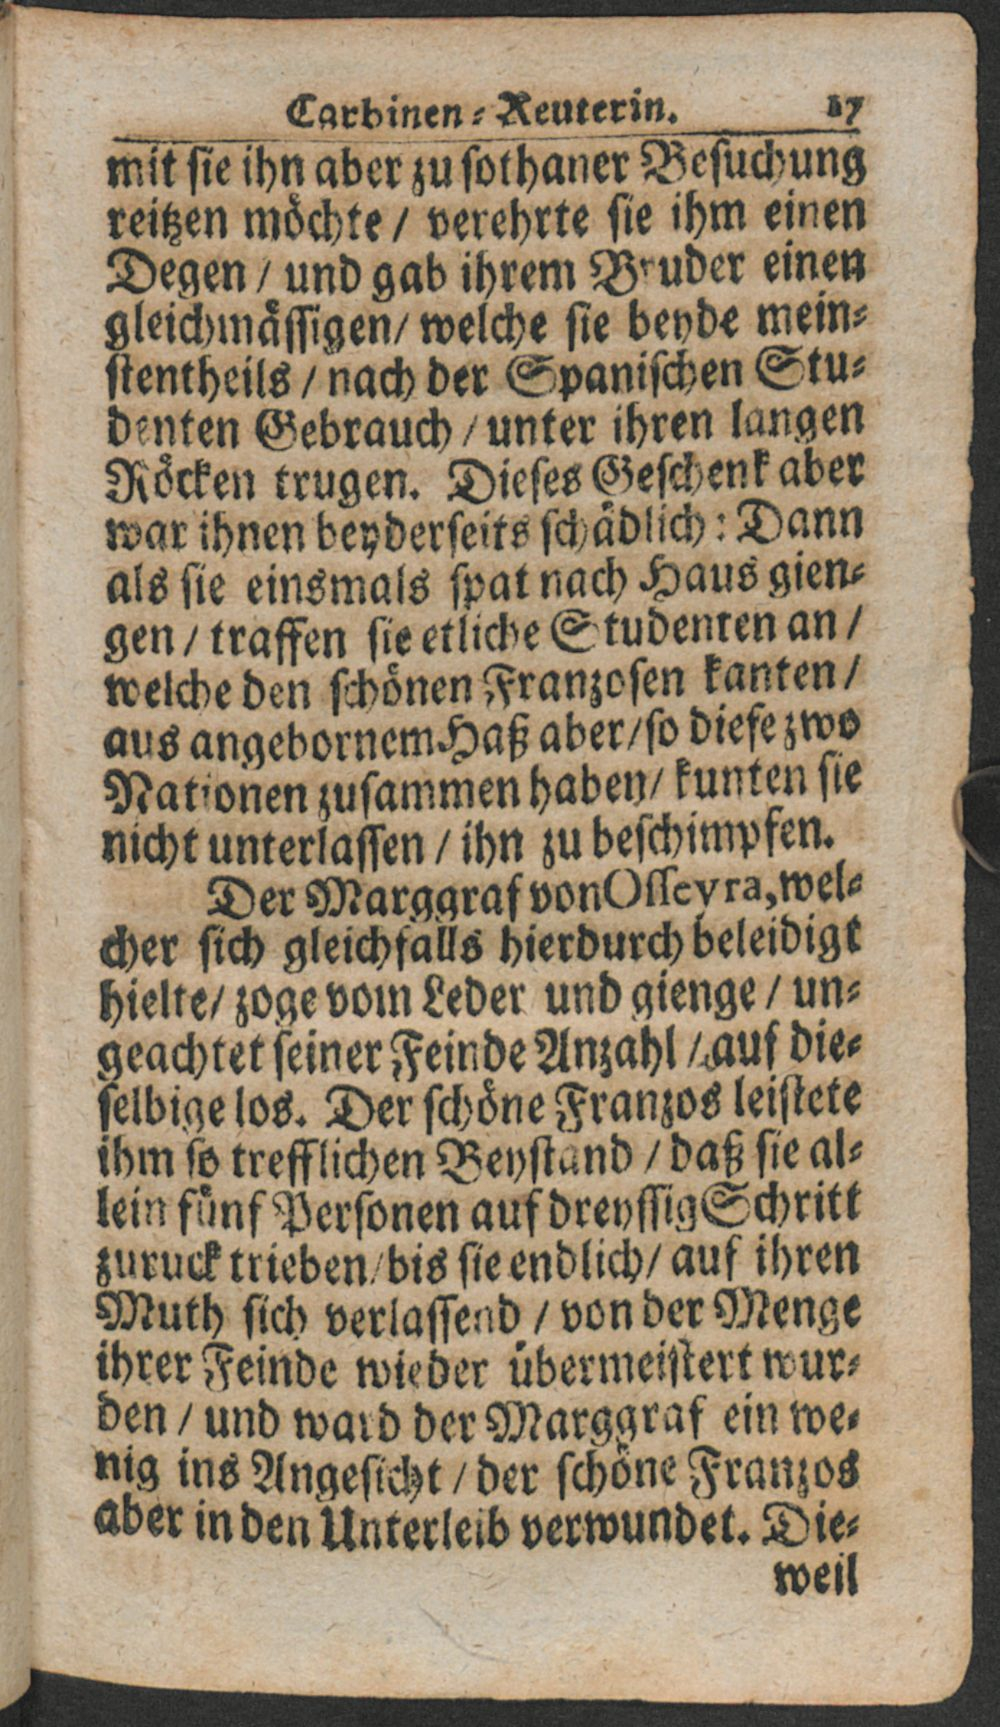 Carbinen-Reuterin. 17
mit sie ihn aber zu sothaner Besuchung
reitzen möchte / verehrte sie ihm einen
Degen / und gab ihrem Bruder einen
gleichmässigen / welche sie beyde mein-
stentheils / nach der Spanischen Stu-
denten Gebrauch / unter ihren langen
Röcken trugen. Dieses Geschenk aber
war ihnen beyderseits schädlich: Dann
als sie einsmals spat nach Haus gien-
gen / traffen sie etliche Studenten an /
welche den schönen Franzosen kanten /
aus angebornem Haß aber / so diese zwo
Nationen zusammen haben / kunten sie
nicht unterlassen / ihn zu beschimpfen.
Der Marggraf von Osseyra, wel-
cher sich gleichfalls hierdurch beleidigt
hielte / zoge vom Leder und gienge / un-
geachtet seiner Feinde Anzahl / auf die-
selbige los. Der schöne Franzos leistete
ihm so trefflichen Beystand / daß sie al-
lein fünf Personen auf dreyssig Schritt
zuruck trieben / bis sie endlich / auf ihren
Muth sich verlassend / von der Menge
ihrer Feinde wieder übermeistert wur-
den / und ward der Marggraf ein we-
nig ins Angesicht / der schöne Franzos
aber in den Unterleib verwundet. Die-
weil